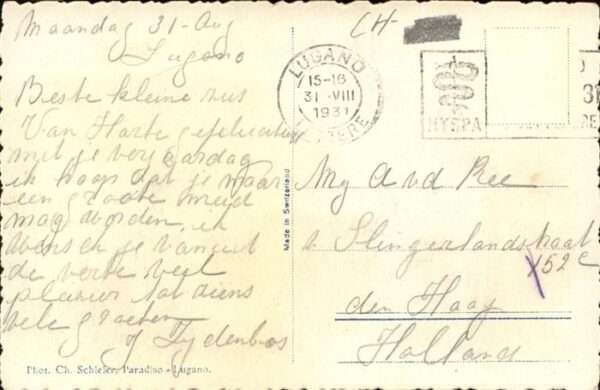 Maandag 31-Aug
Lugano
Beste kleine zus
Van Harte gefeliciteerd
met je verjaardag
ik hoop dat je maar
een groote meid
mag worden, ik
wens en je vanuit
de verte veel
plezier tot ziens
vele groeten
J
Phot. Ch. Schiefer, Paradiso - Lugano.
Made in Switzerland
CH-
LUGANO
15-16
31·VIII
1931
LETTERE
HYSPA
Mej A vd Ree
v. Slingerlandstraat
152e
den Haag
Holland